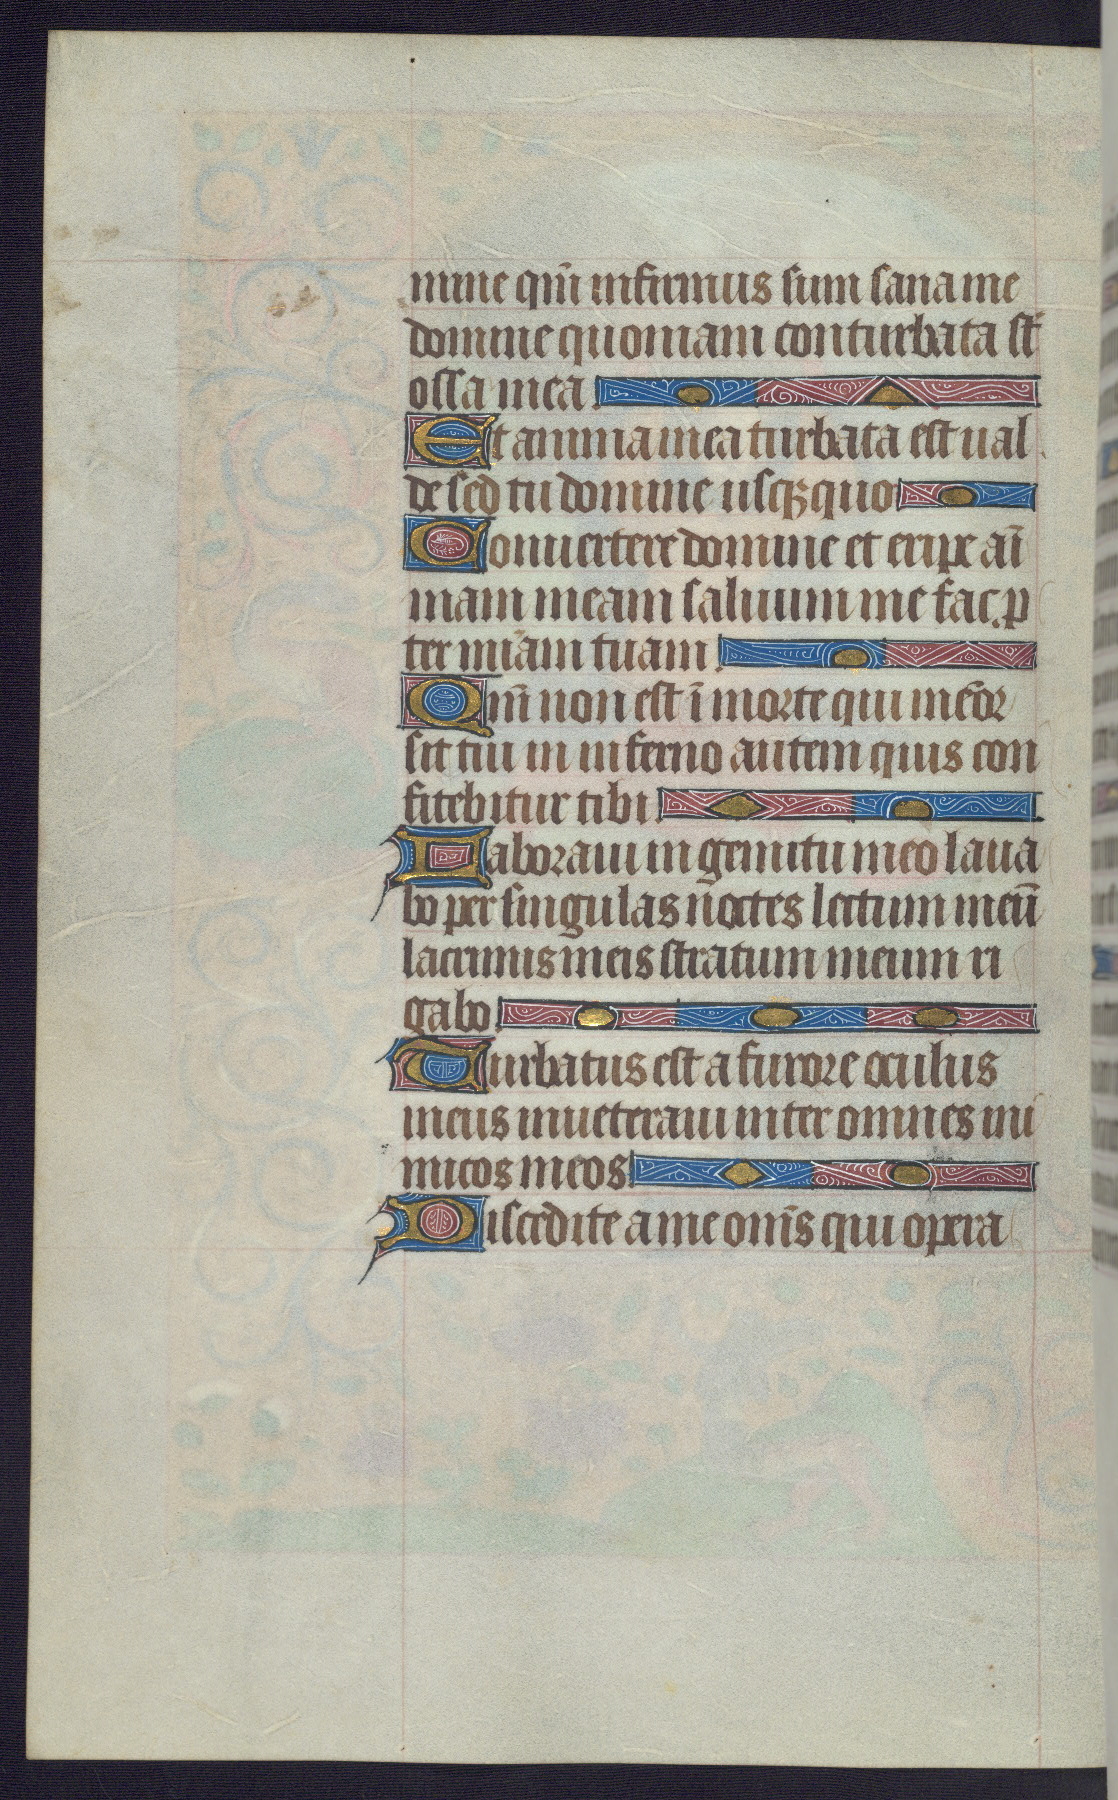 mine qm̄ infirmus sum sana me
domine quoniam conturbata st̄
ossa mea
Et anima mea turbata est ual
de sed tu domine usqꝫ quo
Conuertere domine et eripe ai̅
mam meam saluum me fac ꝓp
ter mi̅am tuam
Qm̄ non est ī morte qui me̅or
sit tui in inferno autem quis con
fitebitur tibi
Laboraui in gemitu meo laua
bo per singulas noctes lectum meū
lacrimis meis stratum meum ri
gabo
Turbatus est a furore oculus
meus inueteraui inter omnes ini
micos meos
Discedite a me om̅s qui opera